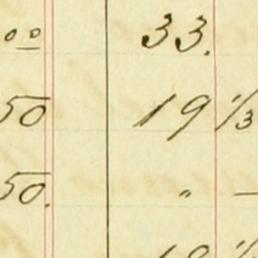 00 33.
50 19 1/3
50. " —